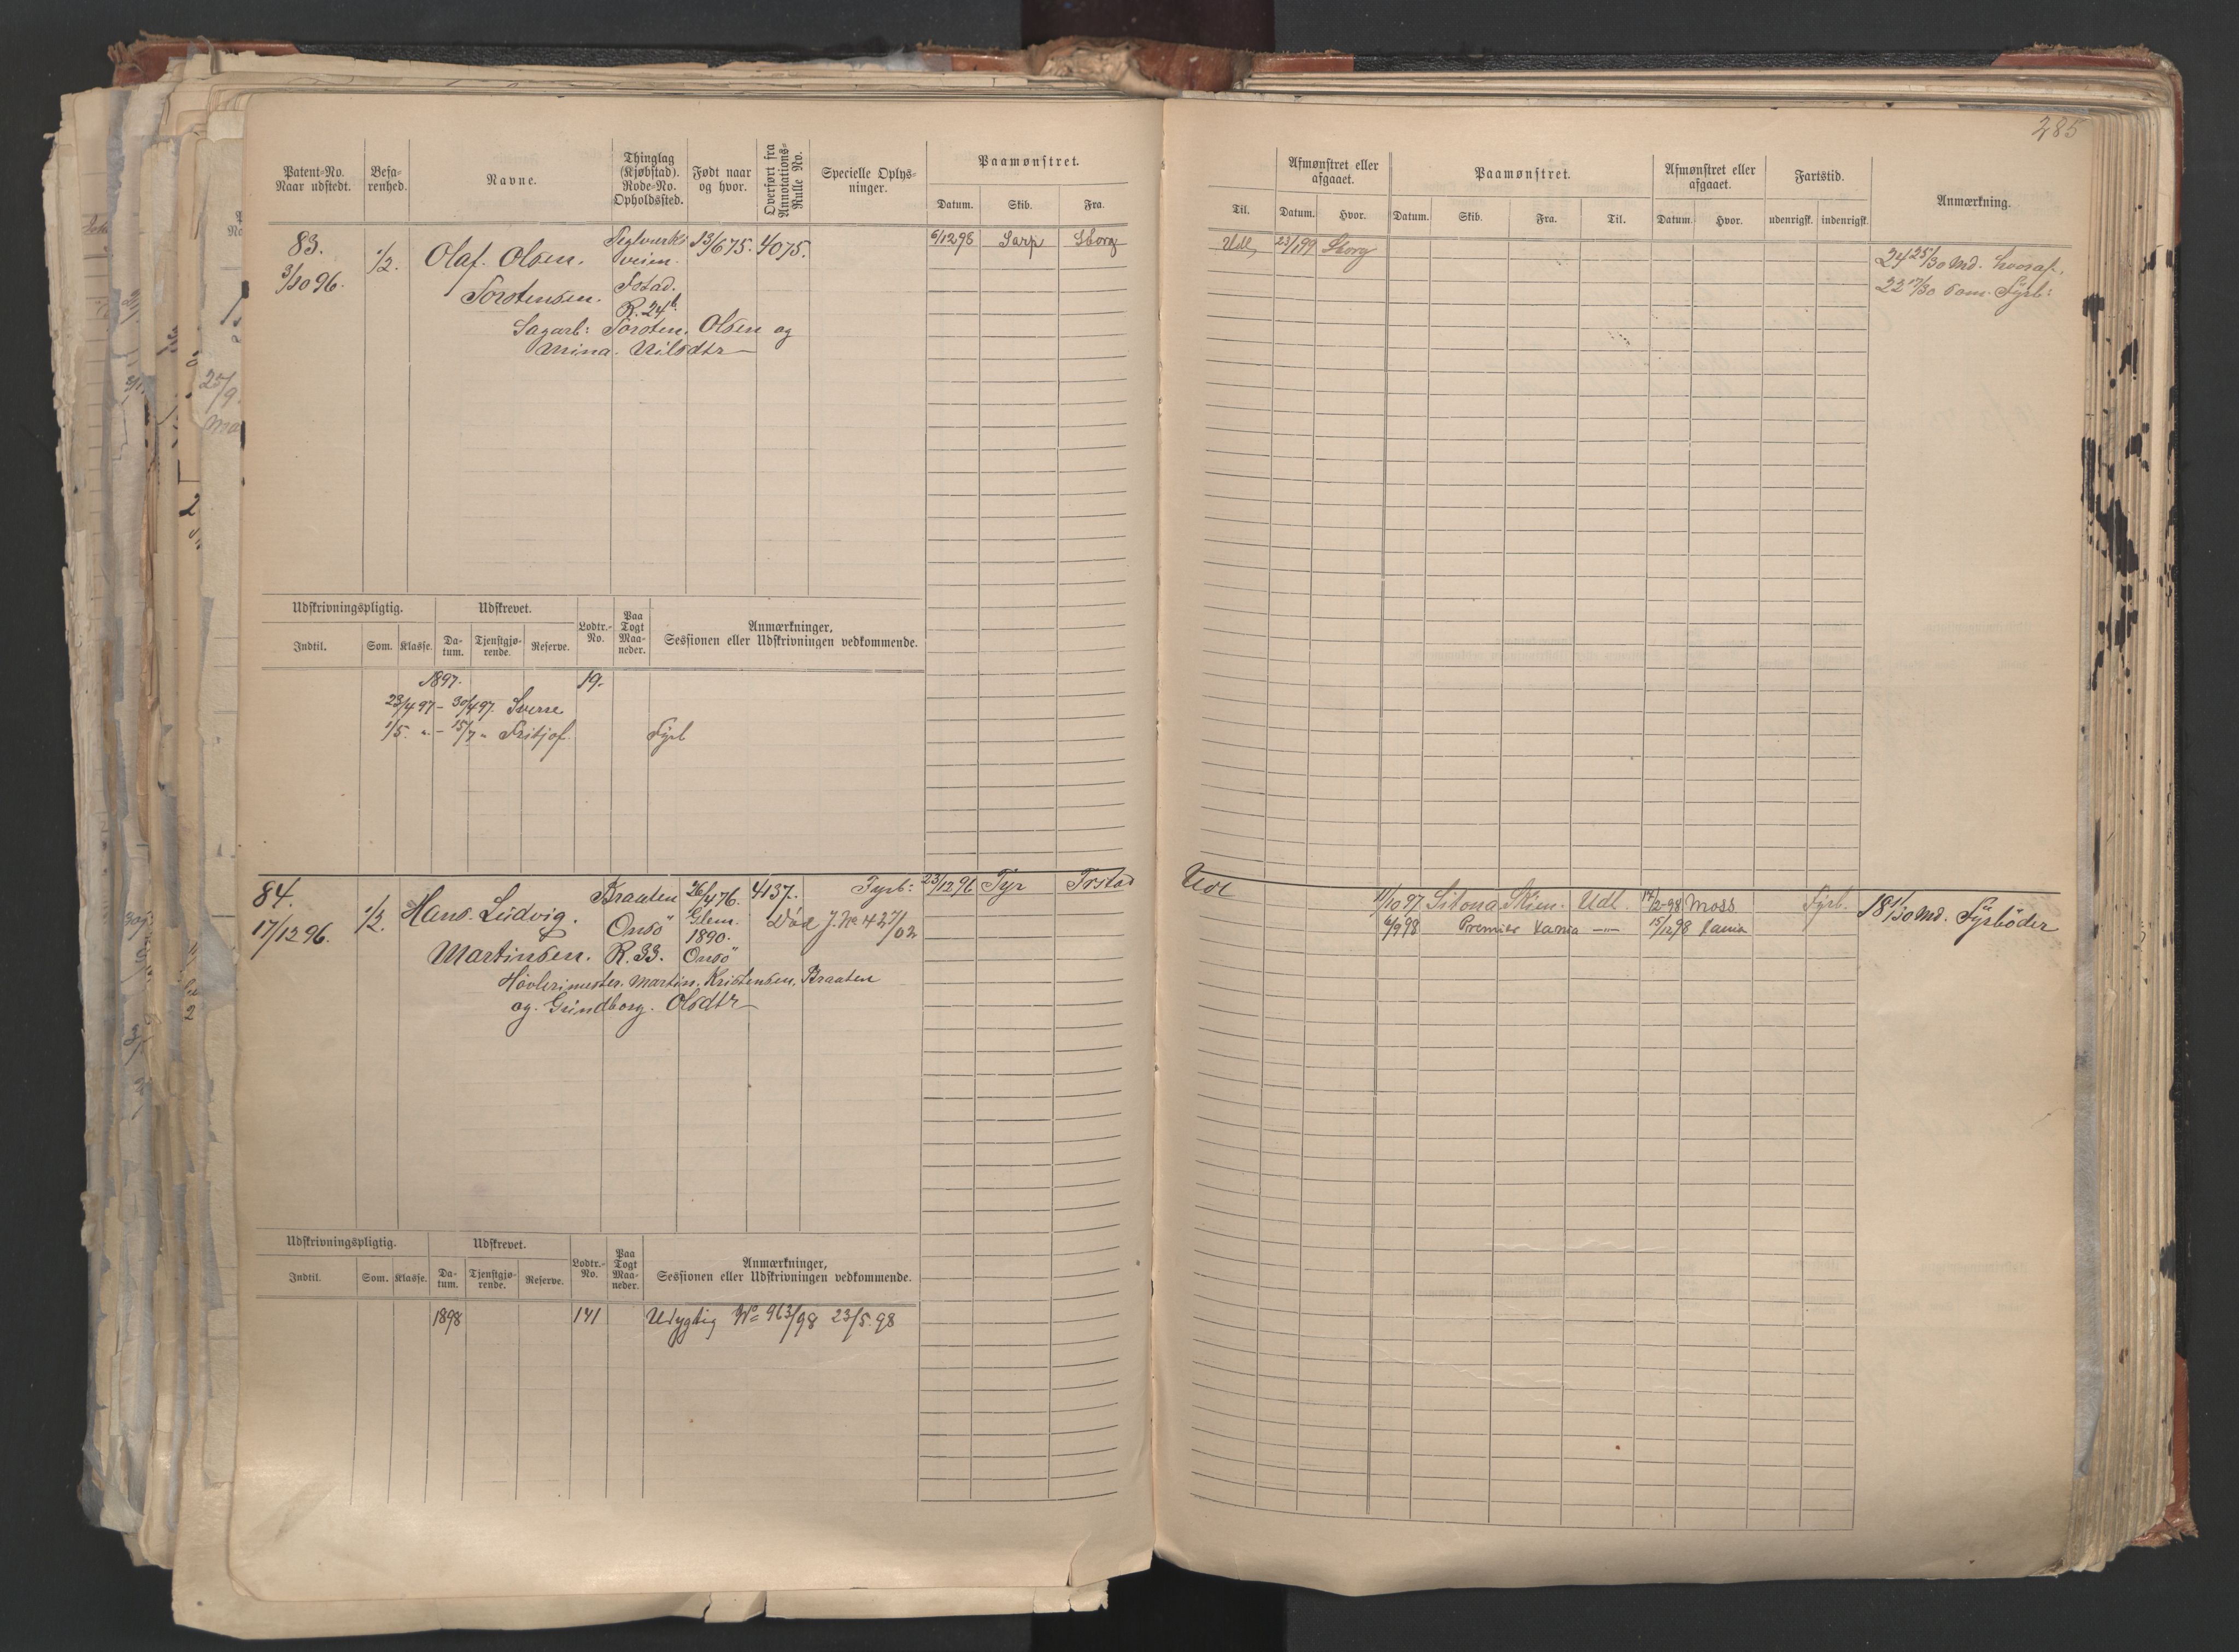 285
Patent-No. Naar udstedt.
Befarenhed.
Navne.
Thinglag (Kjøbstad). Rode-No. Opholdssted.
Født naar og hvor.
Overført fra Annotations-Rulle No.
Specielle Oplysninger.
Paamønstret.
Datum. Skib. Fra.
Til.
Afmønstret eller afgaaet.
Datum. Hvor.
Paamønstret.
Datum. Skib. Fra. Til.
Afmønstret eller afgaaet.
Datum. Hvor.
Fartstid.
udenrigsk. indenrigsk.
Anmærkning.
83. 1/2. Olaf. Olsen. Teglverksveien. 13/6 75. 4075. 6/12 98 Sarp Sborg Udl 23/1 99 Sborg
3/10 96. Torstensen. Fstad. R. 24b.
24 25/30 Md. hvoraf.
22 17/30 som. Fyrb:
Sagarb: Torsten. Olsen og
Mina. Nilsdtr
Udskrivningspligtig. Udskrevet. Lodtr.-No. Paa Togt Maaneder. Anmærkninger, Sessionen eller Udskrivningen vedkommende.
Indtil. Som. Klasse. Datum. Tjenstgjørende. Reserve.
1897. 19.
23/4 97 - 30/4 97. Sverre
1/5. " - 15/7 " Fritjof. Fyrb
84. 1/2. Hans. Ludvig. Braaten 26/4 76. 4137. Fyrb: 23/12 96 Tyr Frstad Udl 11/10 97 Sitona Skien. Udl. 14/2-98 Moss Fyrb. 18 11/30 Md. Fyrböder
17/12 96. Martinsen. Onsö R. 33. Glem. 1890. Onsö Död J.No 427/02 6/9 98 Premier Xania —"— 15/12 98 Xania
Høvlerimester. Martin. Kristensen. Braaten
og. Gundborg. Olsdtr
Udskrivningspligtig. Udskrevet. Lodtr.-No. Paa Togt Maaneder. Anmærkninger, Sessionen eller Udskrivningen vedkommende.
Indtil. Som. Klasse. Datum. Tjenstgjørende. Reserve.
1898 141 Udygtig No 963/98 23/5. 98